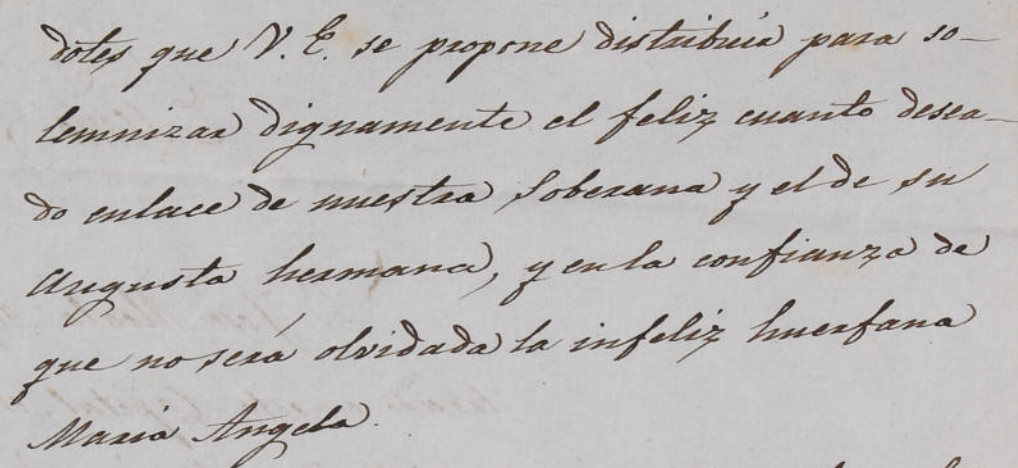 dotes que V. E. se propone distribuir para so-
lemnizar dignamente el feliz cuanto desea-
do enlace de nuestra Soberana y el de su
Augusta hermana, y en la confianza de
que no será olvidada la infeliz huerfana
Maria Angela.